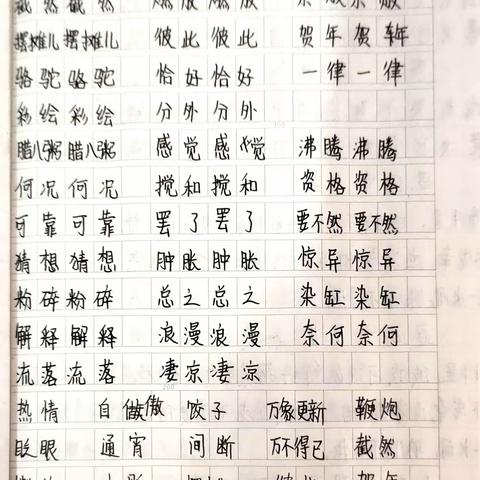 截然截然 燃放燃放
摆摊儿摆摊儿 彼此彼此 贺年贺年
骆驼骆驼 恰好恰好 一律一律
彩绘彩绘 分外分外
腊八粥腊八粥 感觉感觉 沸腾沸腾
何况何况 搅和搅和 资格资格
可靠可靠 罢了罢了 要不然要不然
猜想猜想 肿胀肿胀 惊异惊异
粉碎粉碎 总之总之 染缸染缸
解释解释 浪漫浪漫 奈何奈何
流落流落 凄凉凄凉
热情 自做傲 饺子 万象更新 鞭炮
眨眼 通宵 间断 万不得已 截然